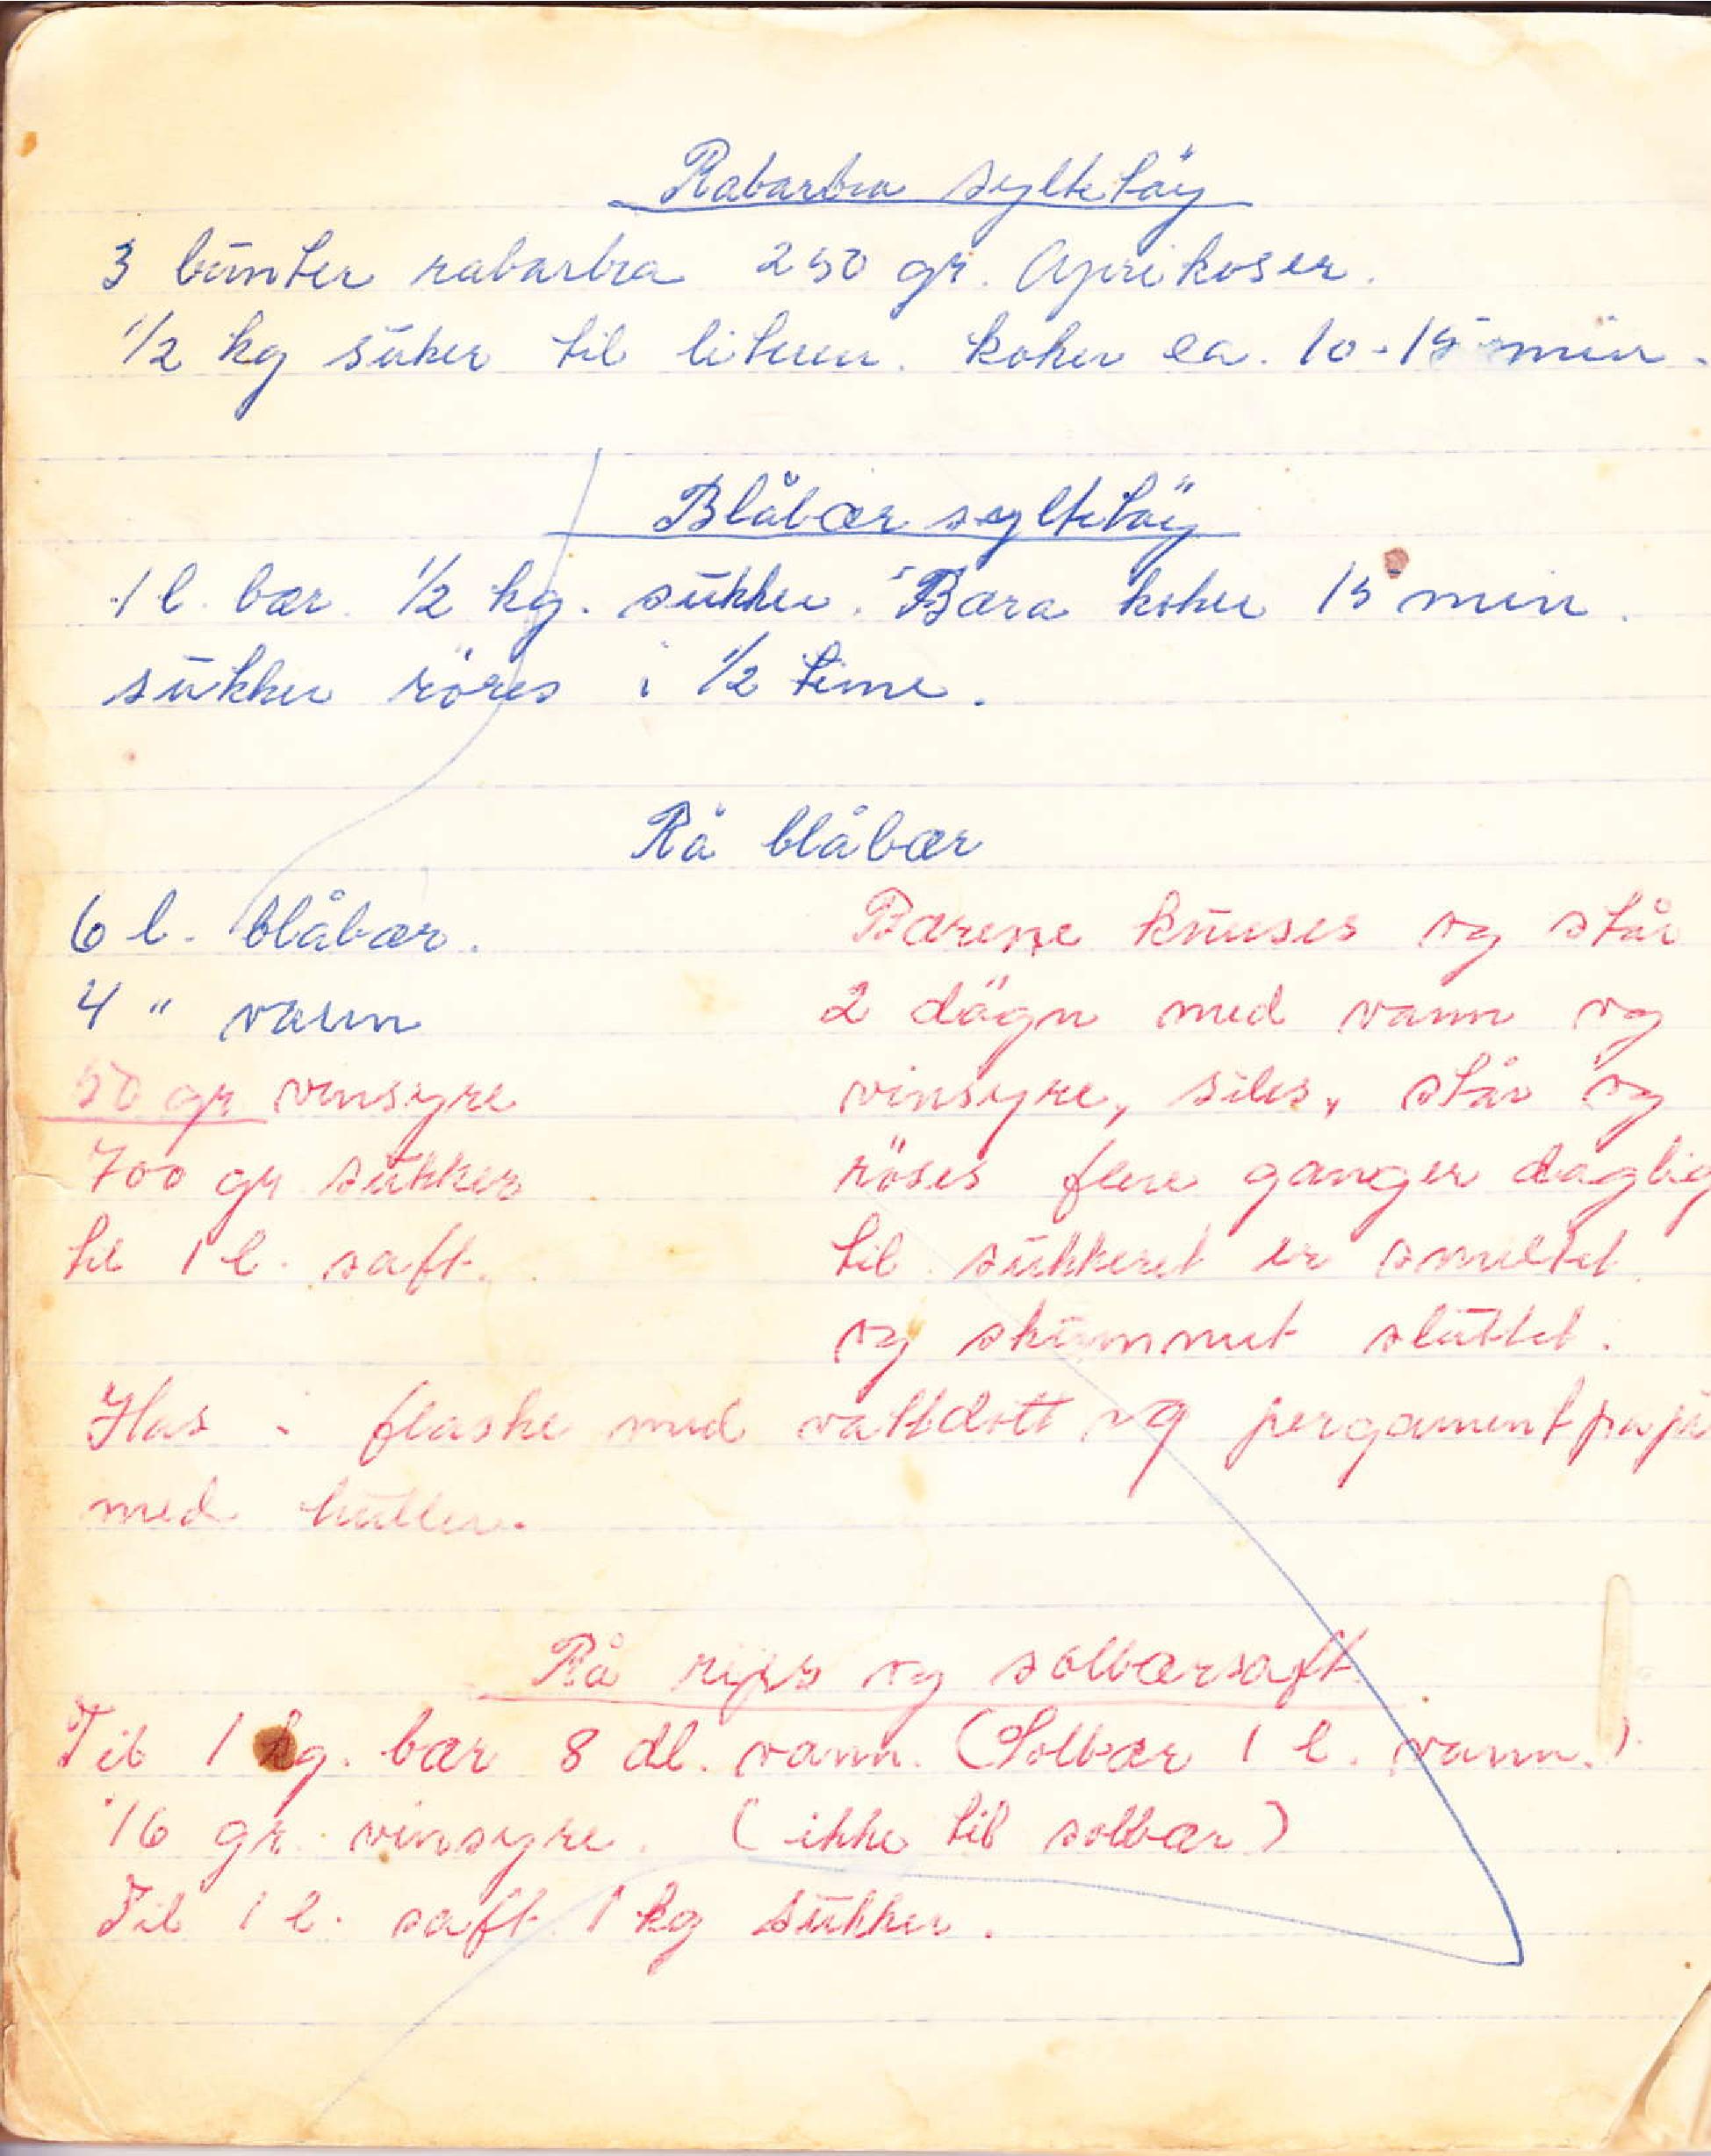 Rabarbra syltetöy
3 bunter rabarbra 250 gr. Aprikoser.
1/2 kg suker til literen. koker ca. 10-15 min.
Blåbær syltetöy
1 l. bær. 1/2 kg. sukker. Bæra koker 15 min.
sukker röres i 1/2 time.
Rå blåbær
6 l. blåbær.
4 " vann
50 gr vinsyre
700 gr sukker
til 1 l. saft.
Bærene knuses og står
2 dögn med vann og
vinsyre, siles, står og
röres flere ganger daglig
til sukkeret er smeltet
og skummet sluttet.
Has i flaske med vattdott og pergamentpapi
med huller.
Rå rips og solbærsaft
Til 1 kg. bær 8 dl. vann. (Solbær 1 l. vann.)
16 gr. vinsyre. (ikke til solbær)
Til 1 l. saft 1 kg sukker.